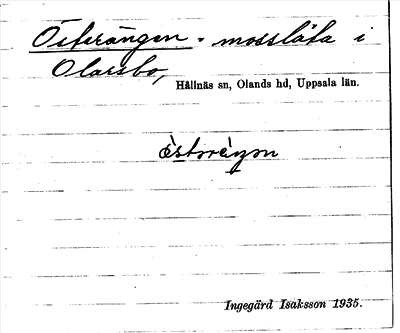 Österängen - mosslåta i
Olarsbo,
Hållnäs sn, Olands hd, Uppsala län.
Ingegärd Isaksson 1935.